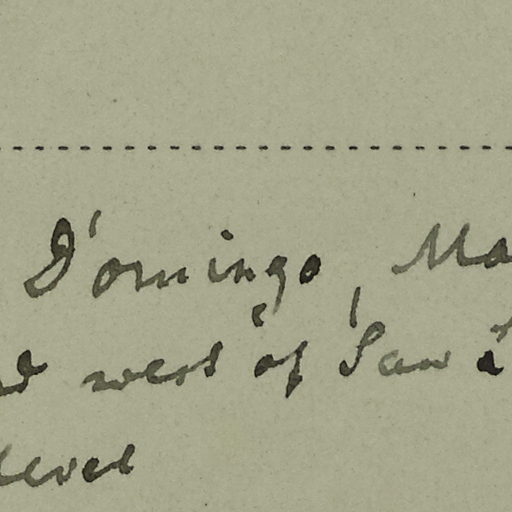 Domingo, Ma
west of San
level